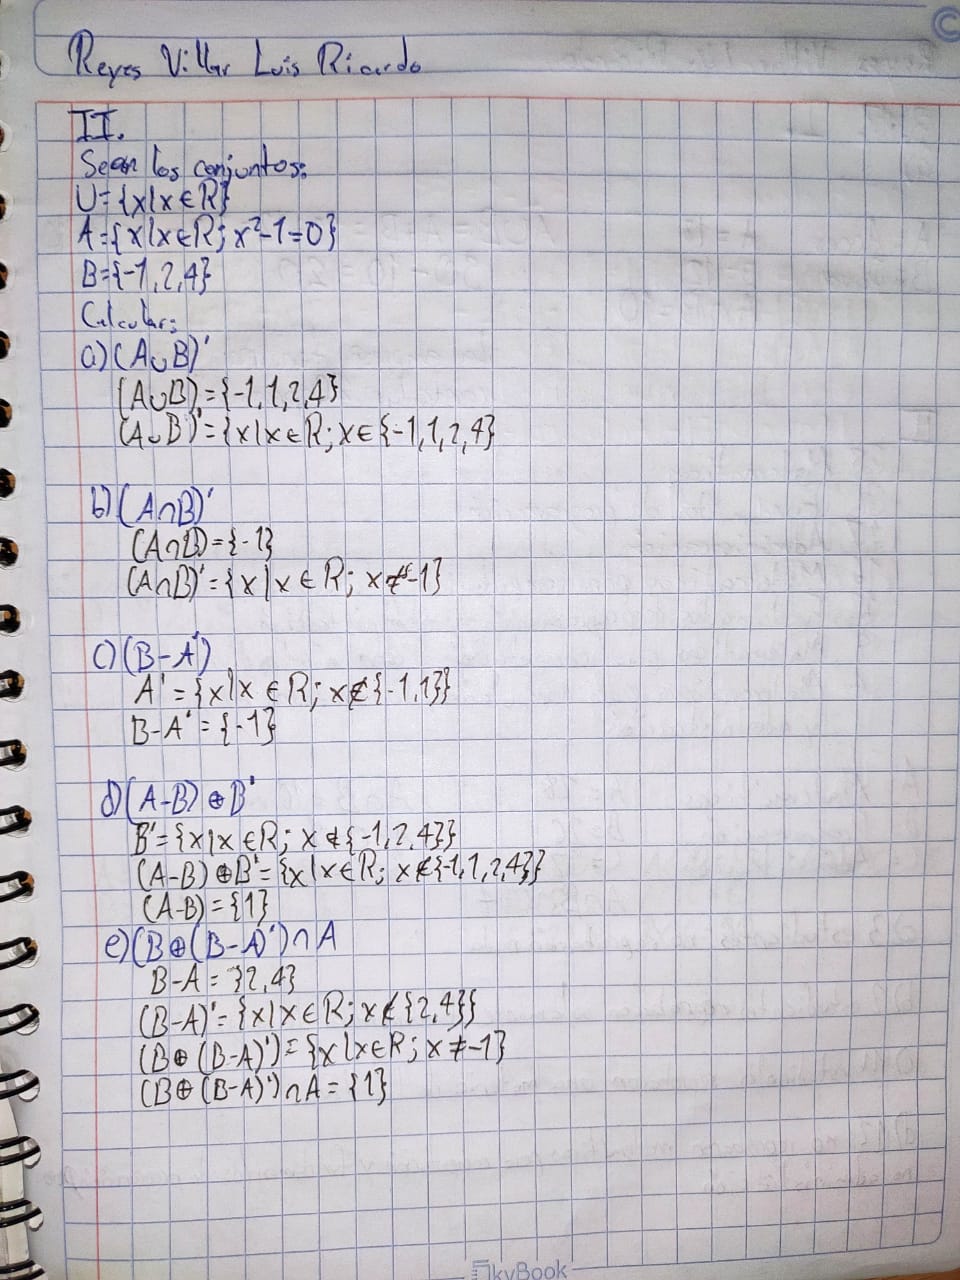 Reyes Villar Luis Ricardo
II.
Sean los conjuntos:
U={x|x∈R}
A={x|x∈R; x²-1=0}
B={-1,2,4}
Calcular:
a)(A∪B)'
(A∪B)={-1,1,2,4}
(A∪B)'={x|x∈R; x∈{-1,1,2,4}
b)(A∩B)'
(A∩B)={-1}
(A∩B)'={x|x∈R; x≠-1}
c)(B-A')
A'={x|x∈R; x∉{-1,1}}
B-A'={-1}
d)(A-B)⊕B'
B'={x|x∈R; x∉{-1,2,4}}
(A-B)⊕B'={x|x∈R; x∉{-1,1,2,4}}
(A-B)={1}
e)(B⊕(B-A)')∩A
B-A={2,4}
(B-A)'={x|x∈R; x∉{2,4}}
(B⊕(B-A)')={x|x∈R; x≠-1}
(B⊕(B-A)')∩A={1}
SkyBook